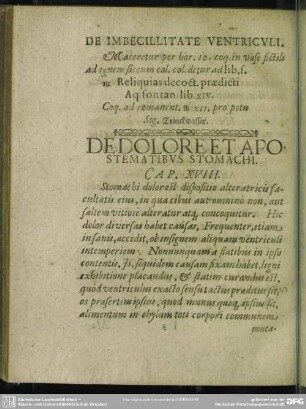 DE IMBECILLITATE VENTRICVLI.
Maceretur per hor. 12. coq. in vase fictili
ad ignem siccum col. col. detur ad lib. s.
Reliquias decoct. prædicti
Aq fontan. lib. xiv.
Coq. ad remanent. xii. pro potu
Sig. Trinckwasser.
DE DOLORE ET APO-
STEMATIBVS STOMACHI.
CAP. XVIII.
Stomachi dolor est dispositio alteratricis fa-
cultatis eius, in qua cibus aut omnino non, aut
saltem vitiose alteratur atq, concoquitur. Hic
dolor diversas habet causas, Frequenter, etiam
in sanis, accidit, ob insignem aliquam ventriculi
intemperiem. Nonnunquam a flatibus in ipso
contentis. Is, siquidem causam fixam habet, signi
exhibitione placandus, & statim curandus est,
quod ventriculus exacto sensu tactus præditus sit,
os præsertim ipsius, quod munus quoq, ipsius sit,
alimentum in chylum toti corpori communem
muta-